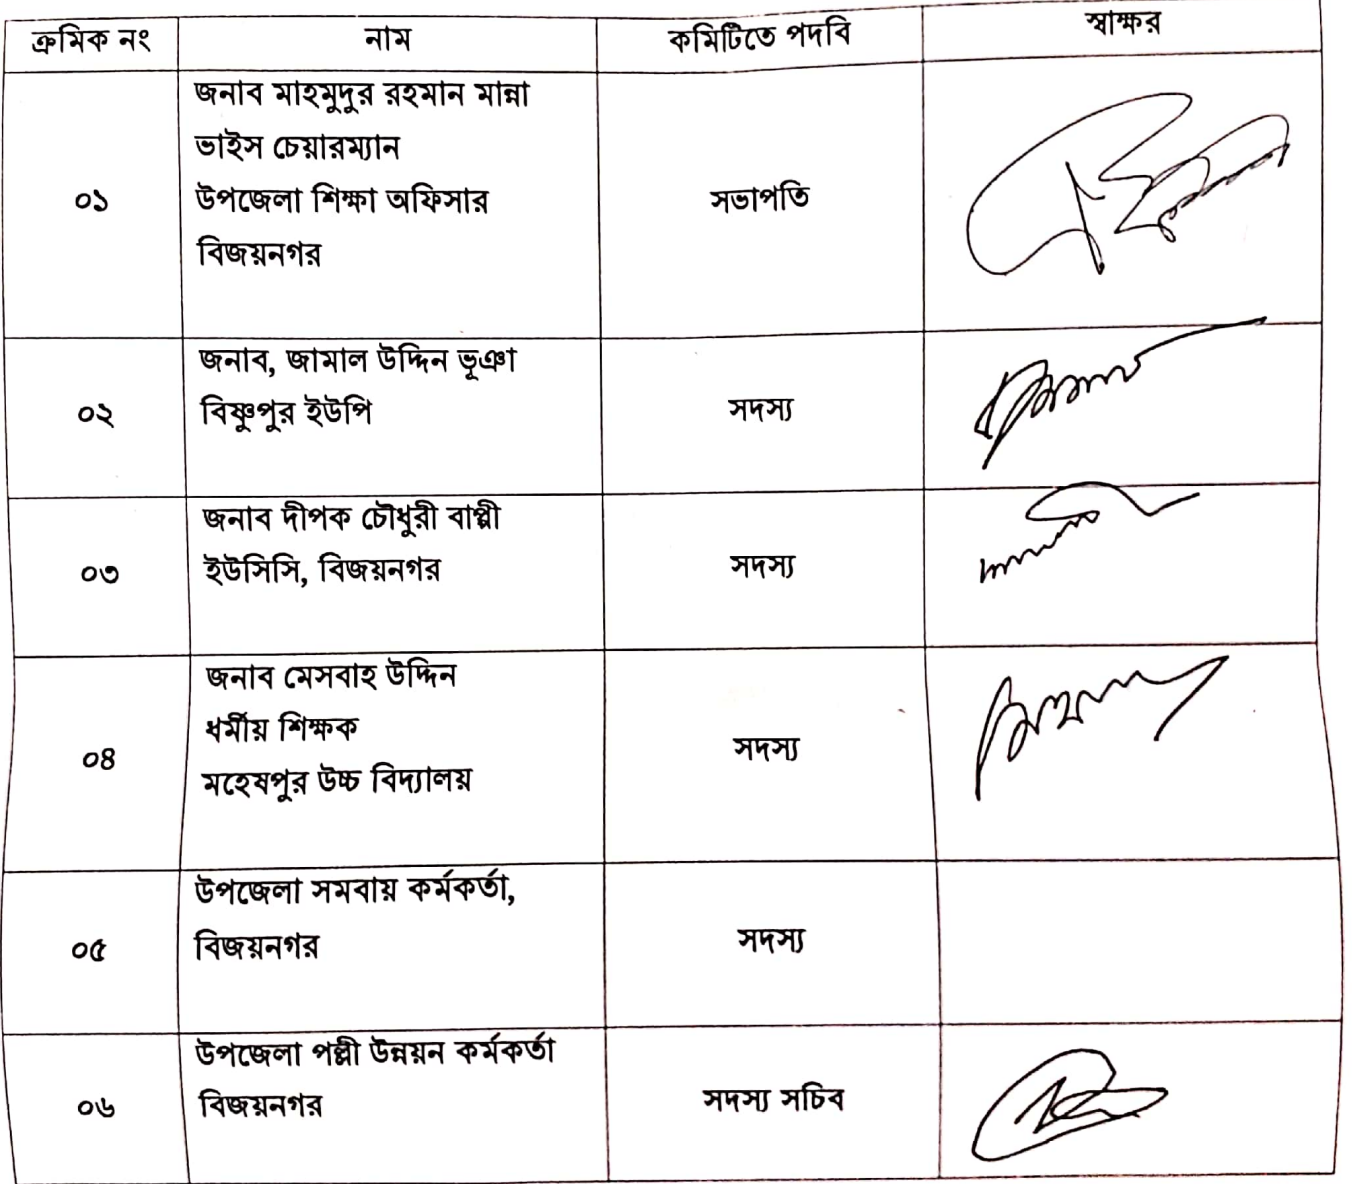 ক্রমিক নং নাম কমিটিতে পদবি স্বাক্ষর
০১
জনাব মাহমুদুর রহমান মান্না
ভাইস চেয়ারম্যান
উপজেলা শিক্ষা অফিসার
বিজয়নগর
সভাপতি
০২
জনাব, জামাল উদ্দিন ভূঞা
বিষ্ণুপুর ইউপি
সদস্য
০৩
জনাব দীপক চৌধুরী বাপ্পী
ইউসিসি, বিজয়নগর
সদস্য
০৪
জনাব মেসবাহ উদ্দিন
ধর্মীয় শিক্ষক
মহেষপুর উচ্চ বিদ্যালয়
সদস্য
০৫
উপজেলা সমবায় কর্মকর্তা,
বিজয়নগর
সদস্য
০৬
উপজেলা পল্লী উন্নয়ন কর্মকর্তা
বিজয়নগর
সদস্য সচিব